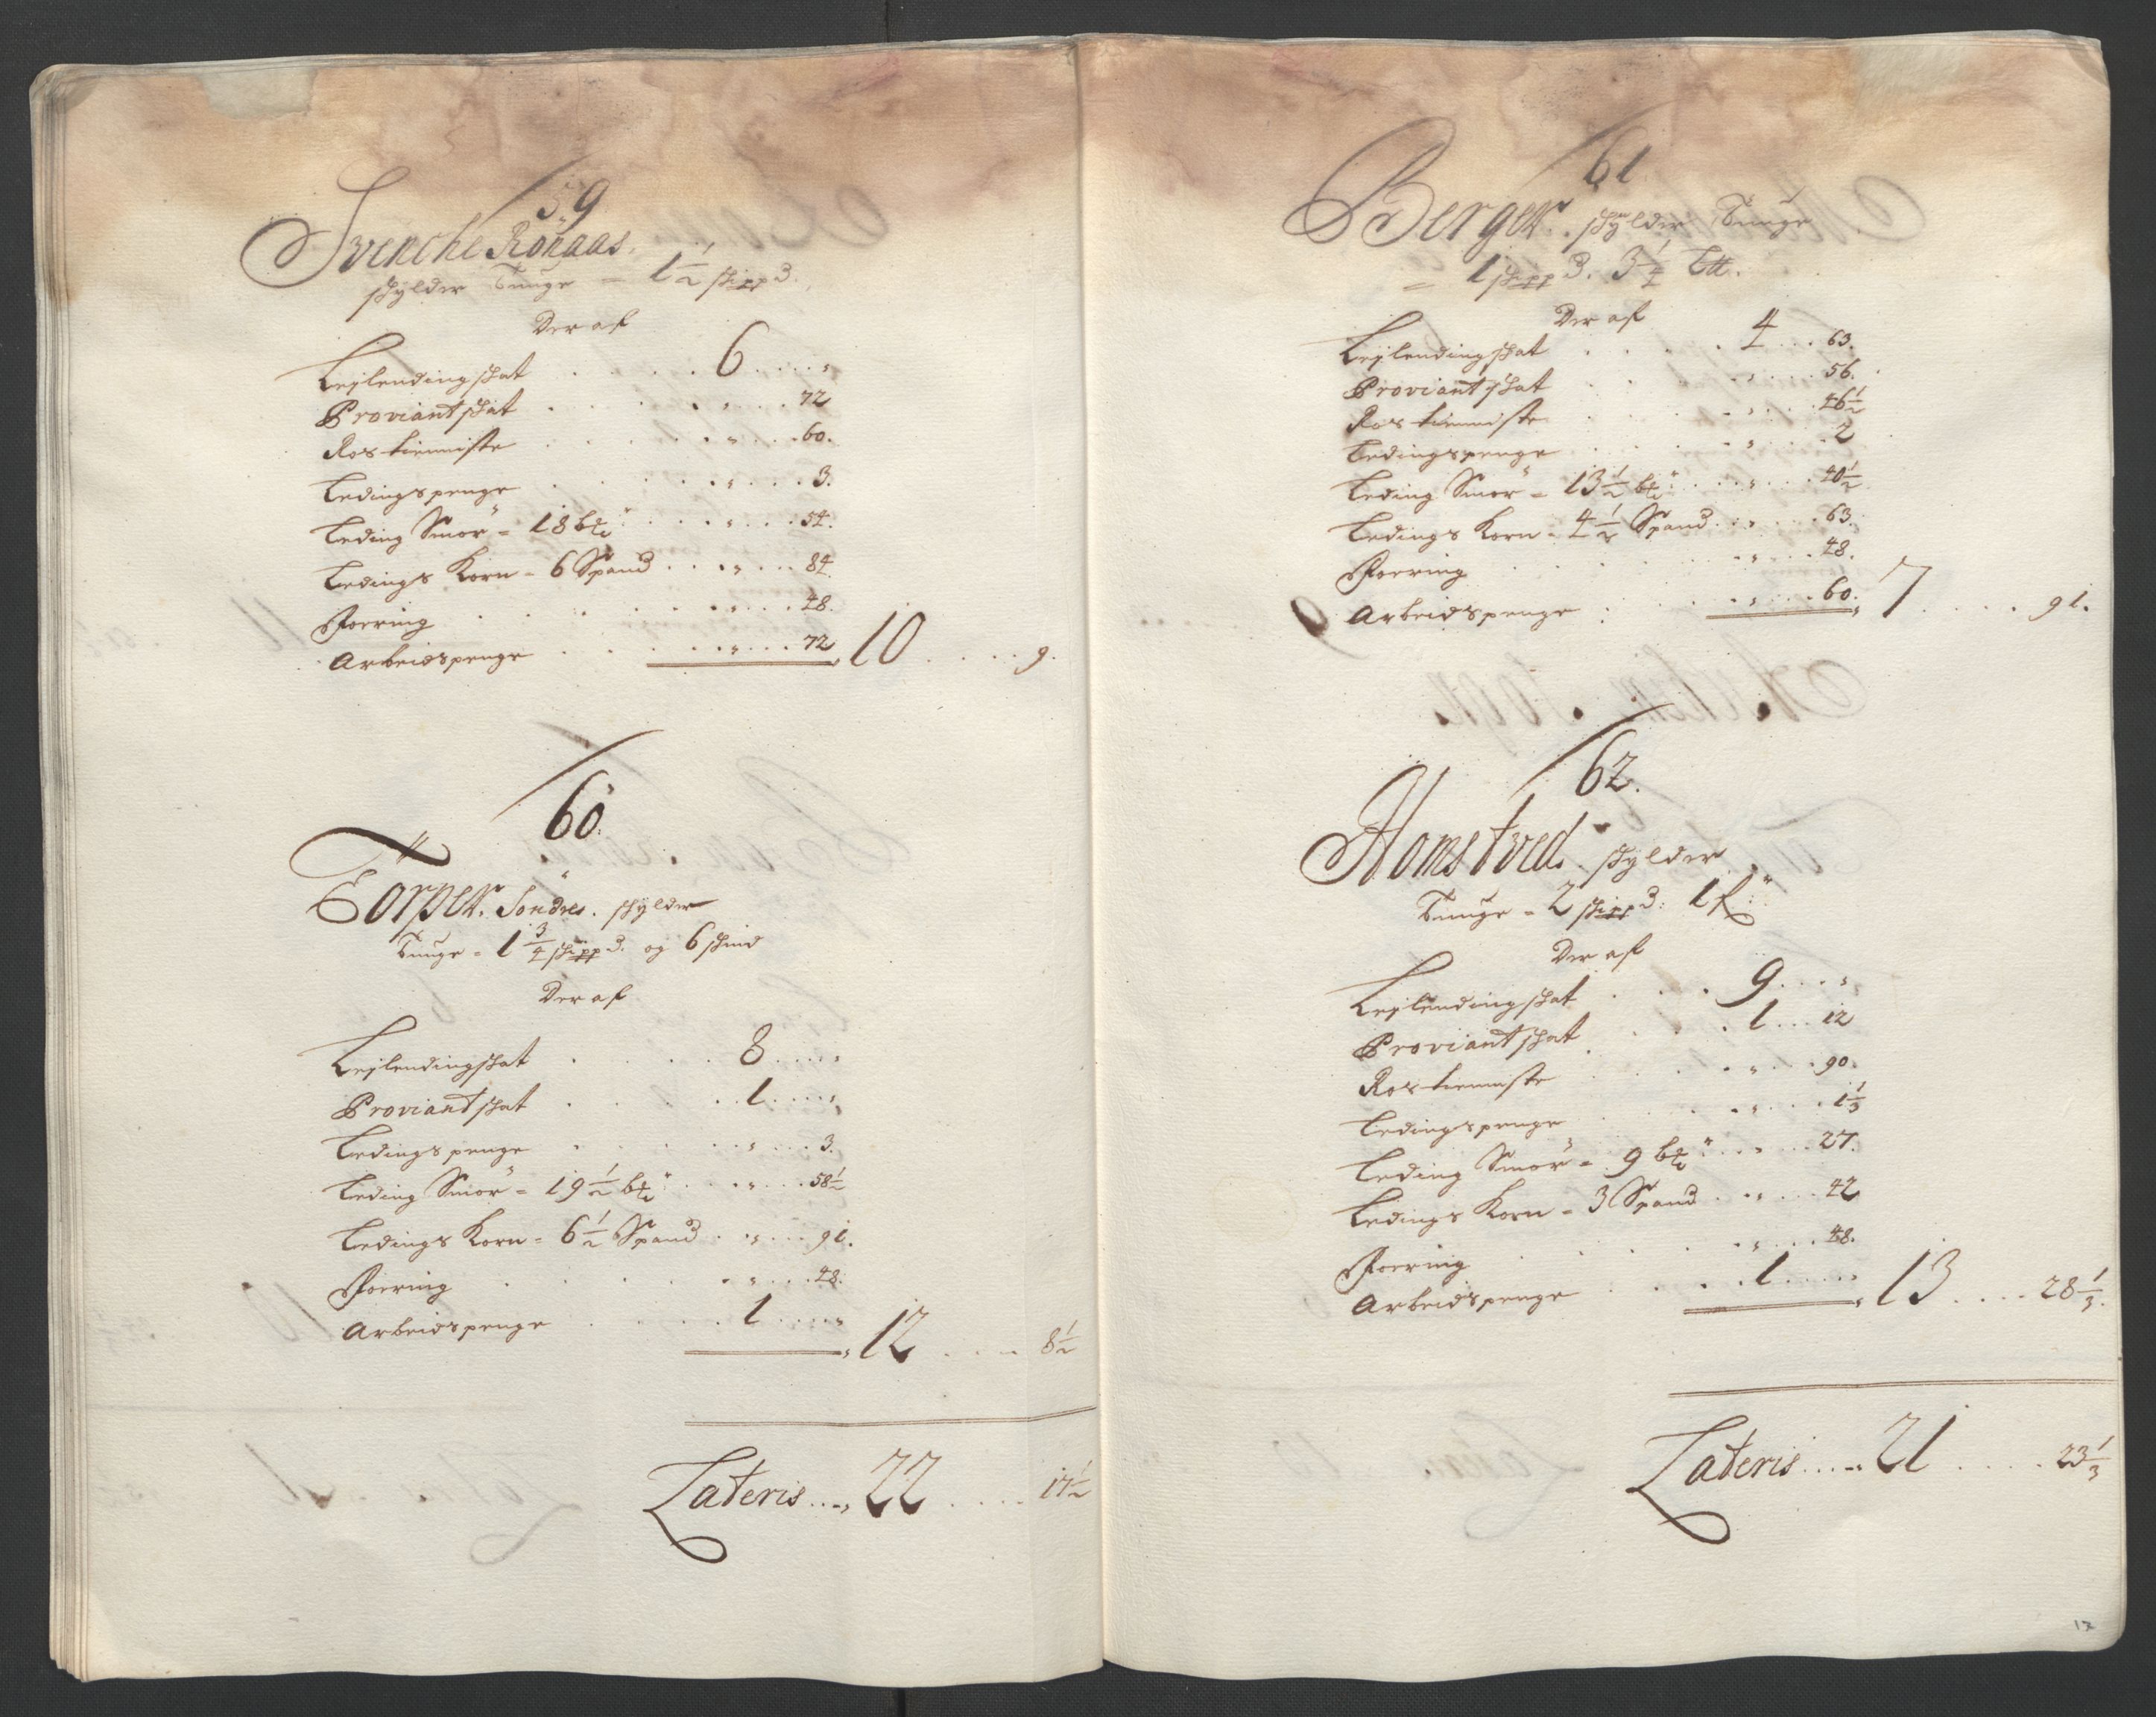 59
Svenche Rönaas.
skylder Tunge = 1 1/2 skippd.
Der af
Lejlendingskat . . . . . 6 . . . . „
Proviantskat . . . . . „ . . . 72
Ros tienniste . . . . . „ . . . 60.
Ledingspenge . . . . . „ . . . 3.
Leding Smör = 18 bt: . . . „ . . . 54.
Ledings Korn = 6 Spand . . . „ . . . 84.
Foering . . . . . „ . . . 48.
Arbeidspenge . . . . . „ . . . 72 „ 10 . . . . 9.
60.
Törper. Söndres. skylder
Tunge = 1 3/4 skippd. og 6 skind
Der af
Lejlendingskat . . . . . 8 . . . . „
Proviantskat . . . . . 1 . . . . „
Ledingspenge . . . . . „ . . . 3.
Leding Smör = 19 1/2 bt: . . . „ . . . 58 1/2
Ledings Korn = 6 1/2 Spand . . . „ . . . 91.
Foering . . . . . „ . . . 48.
Arbeidspenge . . . . . 1 . . . . „ „ 12 . . . . 8 1/2
Lateris . . . „ 22 . . . . 17 1/2
61
Berger. skylder Tunge
= 1 skippd. 3 1/4 Ltt.
Der af
Lejlendingskat . . . . . 4 . . . 63.
Proviantskat . . . . . „ . . . 56.
Ros tienniste . . . . . „ . . . 46 1/2
Ledingspenge . . . . . „ . . . 2
Leding Smör = 13 1/2 bt: . . . „ . . . 40 1/2
Ledings Korn = 4 1/2 Spand . . „ . . . 63.
Foering . . . . . „ . . . 48.
Arbeidspenge . . . . . „ . . . 60. „ 7 . . . . 91.
62.
Homstved. skylder
Tunge = 2 skippd: 1 f:
Der af
Lejlendingskat . . . . 9 . . . . „
Proviantskat . . . . . 1 . . . 12
Ros tienniste . . . . . „ . . . 90.
Ledingspenge . . . . . „ . . . 1 1/3
Leding Smör = 9 bt: . . . „ . . . 27.
Ledings Korn = 3 Spand . . . „ . . . 42
Foering . . . . . „ . . . 48.
Arbeidspenge . . . . . 1 . . . . „ „ 13 . . . . 28 1/3.
Lateris . . . „ 21 . . . . 23 1/3
17